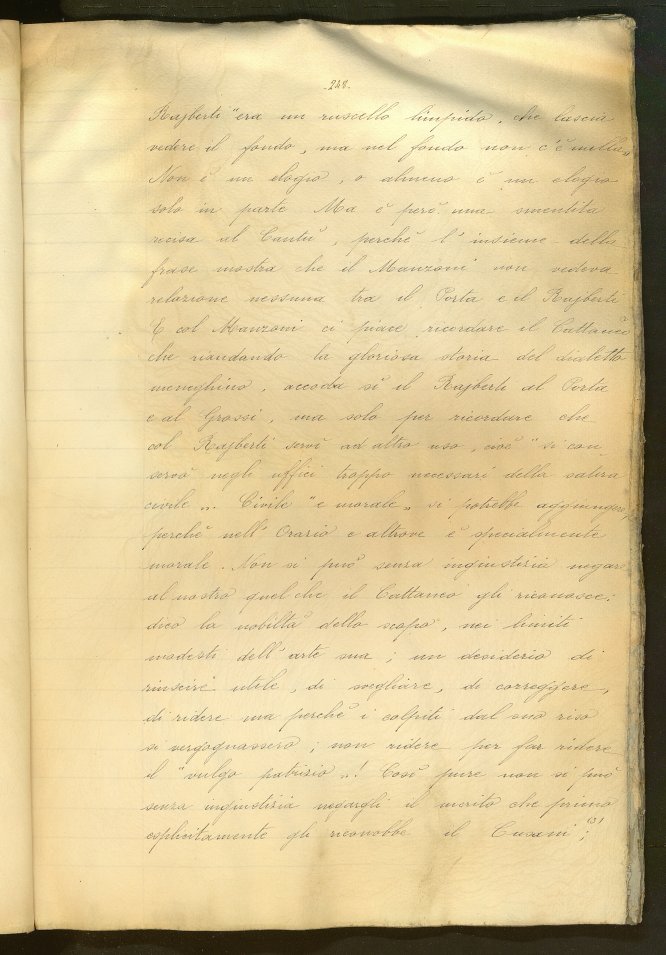 -248-
Rajberti "era un ruscello limpido, che lascia
vedere il fondo, ma nel fondo non c'è nulla„
Non è un elogio, o almeno è un elogio
solo in parte Ma è però una smentita
recisa al Cantù, perchè l'insieme della
frase mostra che il Manzoni non vedeva
relazione nessuna tra il Porta e il Rajberti
E col Manzoni ci piace ricordare il Cattaneo
che riandando la gloriosa storia del dialetto
meneghino, accoda sì il Rajberti al Porta
e al Grossi, ma solo per ricordare che
col Rajberti servì ad altro uso, cioè "si con
servò negli uffici troppo necessari della satira
civile„. Civile "e morale„ si potrebbe aggiungere,
perchè nell'Orazio e altrove è specialmente
morale. Non si può senza ingiustizia negare
al nostro quel che il Cattaneo gli riconosce:
dico la nobiltà dello scopo, nei limiti
modesti dell'arte sua; un desiderio di
riuscire utile, di svegliare, di correggere,
di ridere ma perchè i colpiti dal suo riso
si vergognassero; non ridere per far ridere
il "vulgo patrizio„! Così pure non si può
senza ingiustizia negargli il merito che primo
esplicitamente gli riconobbe il Cusani;(3)